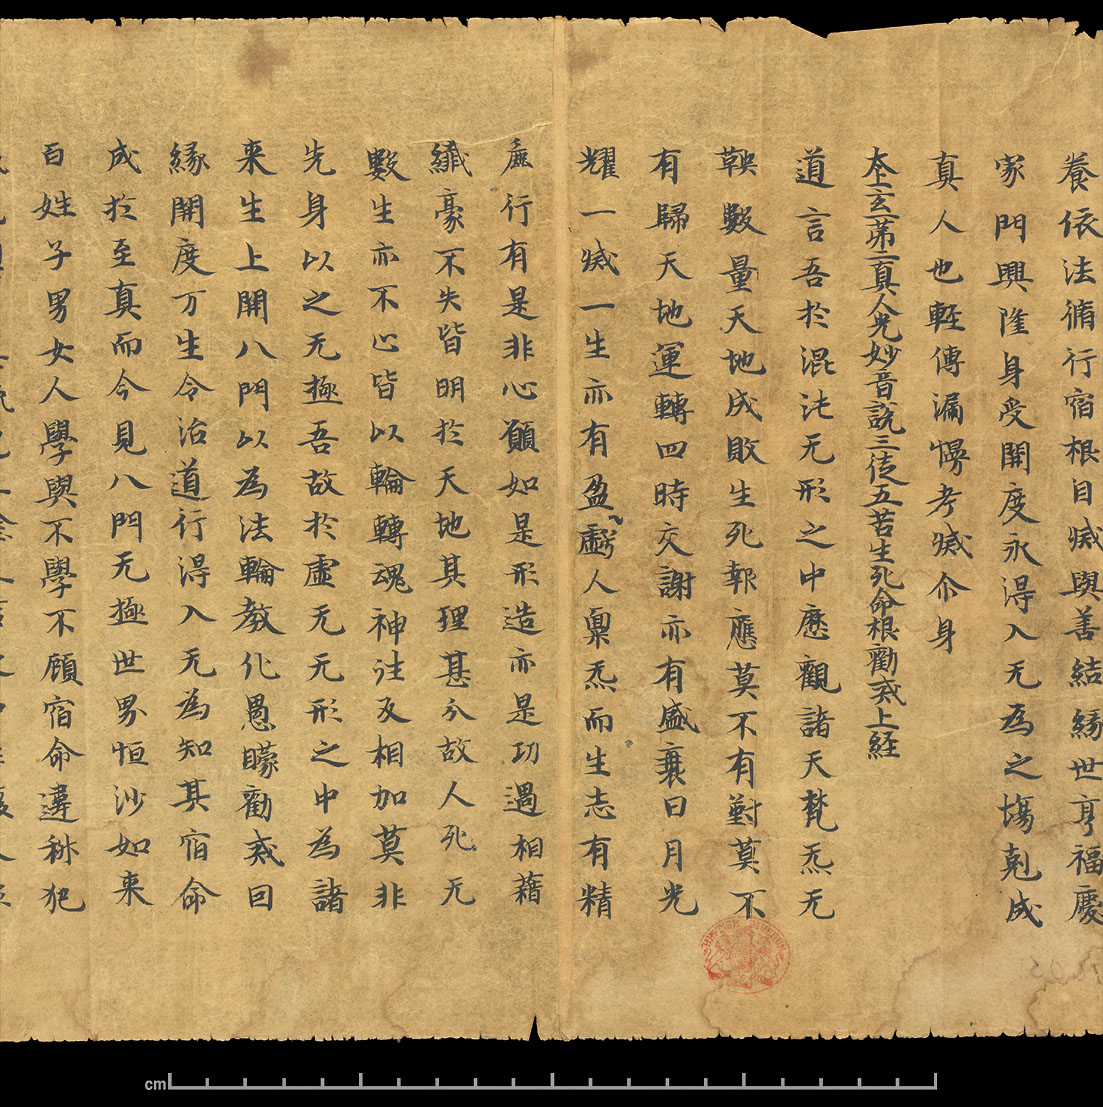 養依法脩行宿根自滅與善結緣世享福慶
家門興隆身受開度永得入无為之場剋成
真人也輕傳漏慢考滅尒身
太上玄苐二真人光妙音說三徒五苦生死命根勸戒上経
道言吾於混沌无形之中歷觀諸天梵炁无
鞅數量天地成敗生死報應莫不有對莫不
有歸天地運轉四時交謝亦有盛衰日月光
耀一滅一生亦有盈虧人稟炁而生志有精
麁行有是非心願如是形造亦是功過相藉
纖豪不失皆明於天地其理甚分故人死无
數生亦不以皆以輪轉魂神往反相加莫非
先身以之无極吾故於虛无无形之中為諸
来生上開八門以為法輪教化愚矇勸戒回
緣開度万生令治道行得入无為知其宿命
成於至真而今見八門无極世界恒沙如来
百姓子男女人學與不學不顧宿命違科犯